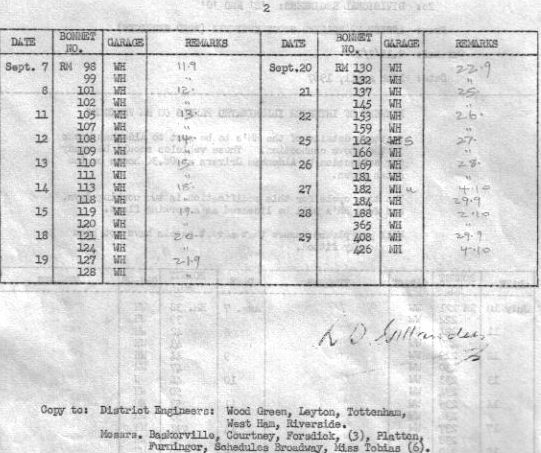 2
DATE BONNET NO. GARAGE REMARKS DATE BONNET NO. GARAGE REMARKS
Sept. 7 RM 98 WH 11.9 Sept.20 RM 130 WH 22.9
99 WH " 132 WH "
8 101 WH 12. 21 137 WH 25.
102 WH " 145 WH "
11 105 WH 13. 22 153 WH 26.
107 WH " 159 WH "
12 108 WH 14. 25 162 WH 27.
109 WH " 166 WH "
13 110 WH 15. 26 169 WH 28.
111 WH " 181 WH "
14 113 WH 18. 27 182 WH 4.10
118 WH " 184 WH 29.9
15 119 WH 19. 28 188 WH 2.10
120 WH " 365 WH "
18 121 WH 20. 29 408 WH 29.9
124 WH " 426 WH 4.10
19 127 WH 21.9
128 WH "
Copy to: District Engineers: Wood Green, Leyton, Tottenham,
West Ham, Riverside.
Messrs. Baskerville, Courtney, Forsdick, (3), Platten,
Furninger, Schedules Broadway, Miss Tobias (6).